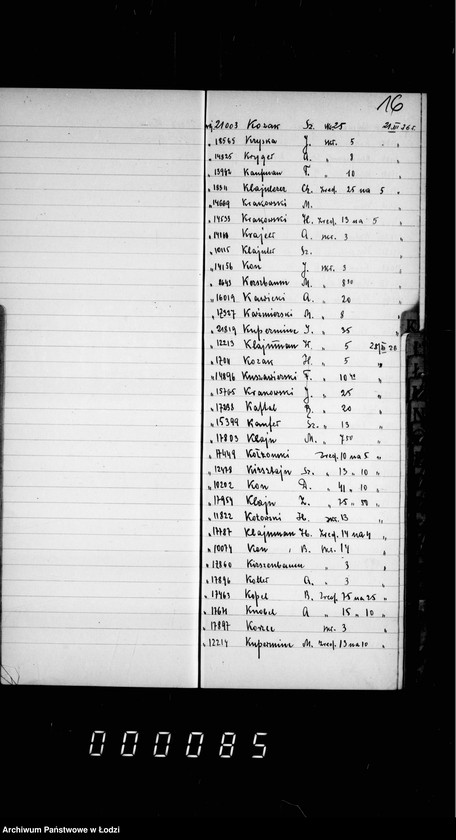 16
21003 Kozak Sz. nr. 25 21 III 26 r.
18565 Kryska J. nr. 5 "
14325 Kryger A. " 8 "
Kaufman F. " 10
Klajnlerer Ch. zred. 25 na 5 "
14669 Krakowski M. "
14535 Krakowski H. zred. 13 na 5 "
Krajer A. nr. 3 "
10115 Klajnler Sz. "
14156 Kon J. nr. 3 "
Korzbaum M. " 8
16019 Kawicki A. " 20 "
17357 Kazimierski M. " 8 "
20819 Kupermine J. " 35 "
12213 Klajnman H. " 5 28/III 26
Kozak H. " 5 "
14896 Kuszawierski F. " 10 "
15765 Kranowski J. " 25 "
Kaftal B. " 20 "
15399 Kamfer Sz. " 13 "
17803 Klajn M. " 7,50 "
17449 Kołkowski zred. 10 na 5 "
12478 Kirsztajn Sz. " 13 " 10 "
10202 Kon D. " 41 " 10 "
17954 Klajn Z. " 75 " 50 "
11822 Kotowski H. nr. 13 "
17787 Klajnman H. zred. 14 na 4 "
10074 Kon B. nr. 14 "
17860 Kirszenbaum " 3 "
17896 Koller A. " 3 "
17463 Kopel B. zred. 75 na 25 "
17671 Knobel A " 15 " 10 "
17897 Korzec nr. 3 "
12214 Kupermine M. zred. 13 na 10 "
K
000085
Archiwum Państwowe w Łodzi